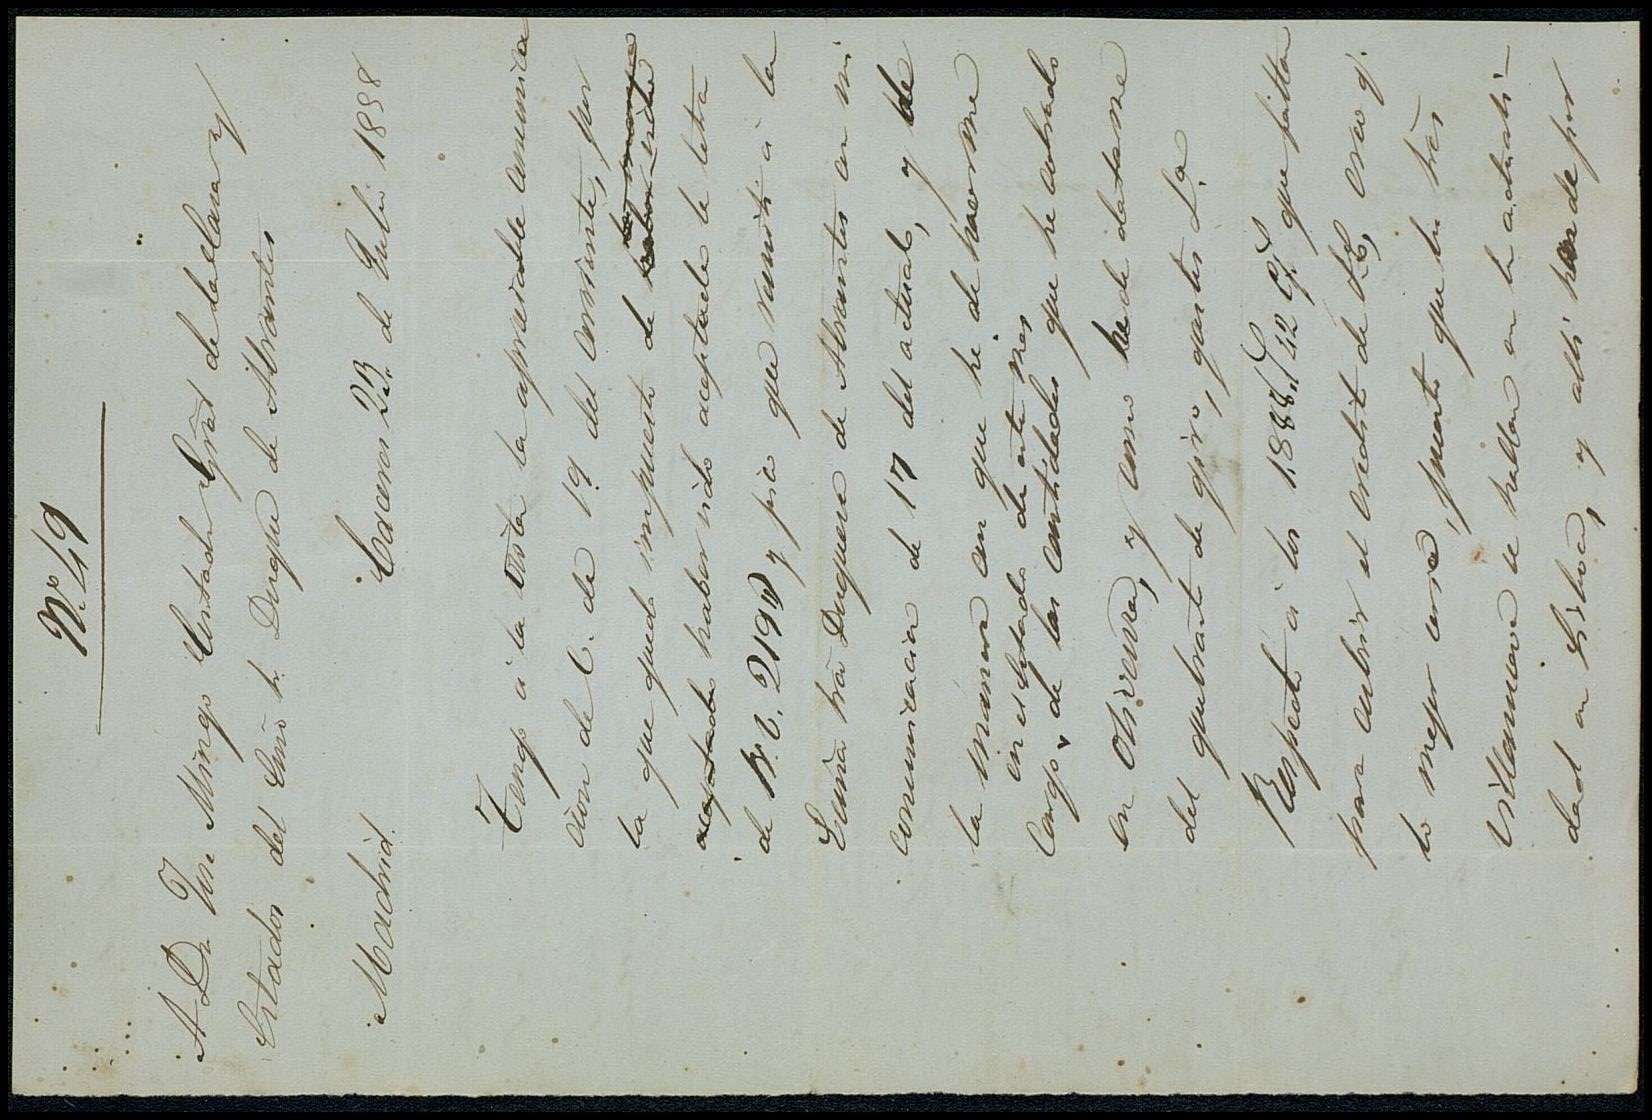 N.º 49
A Dn. José Mingo Contador Gral de la Casa y
Estados del Emo Sr. Duque de Abrantes
Madrid. Cáceres 23 de Julio 1888
Tengo a la vista la apreciable comunica
cion de C. de 19 del corriente, por
la que quedo impuesto de
aceptado haber sido aceptada la letra
de R.C. 2197 y pico que remiti á la
Exma Sra Duquesa de Abrantes en mi
comunicacion de 17 del actual, y de
la manera con que he de hacerme
en el Estado de este mes
Cargo de las cantidades que he cobrado
en Olivenza, y como he de datarme
del quebranto de giro, gastos &a
Respecto á los 1888 22 que faltan
para cubrir el credito de creo q.
lo mejor sería, puesto que los tres
Villanueva se hallan en la actuali-
dad en Lisboa, y alli han de por